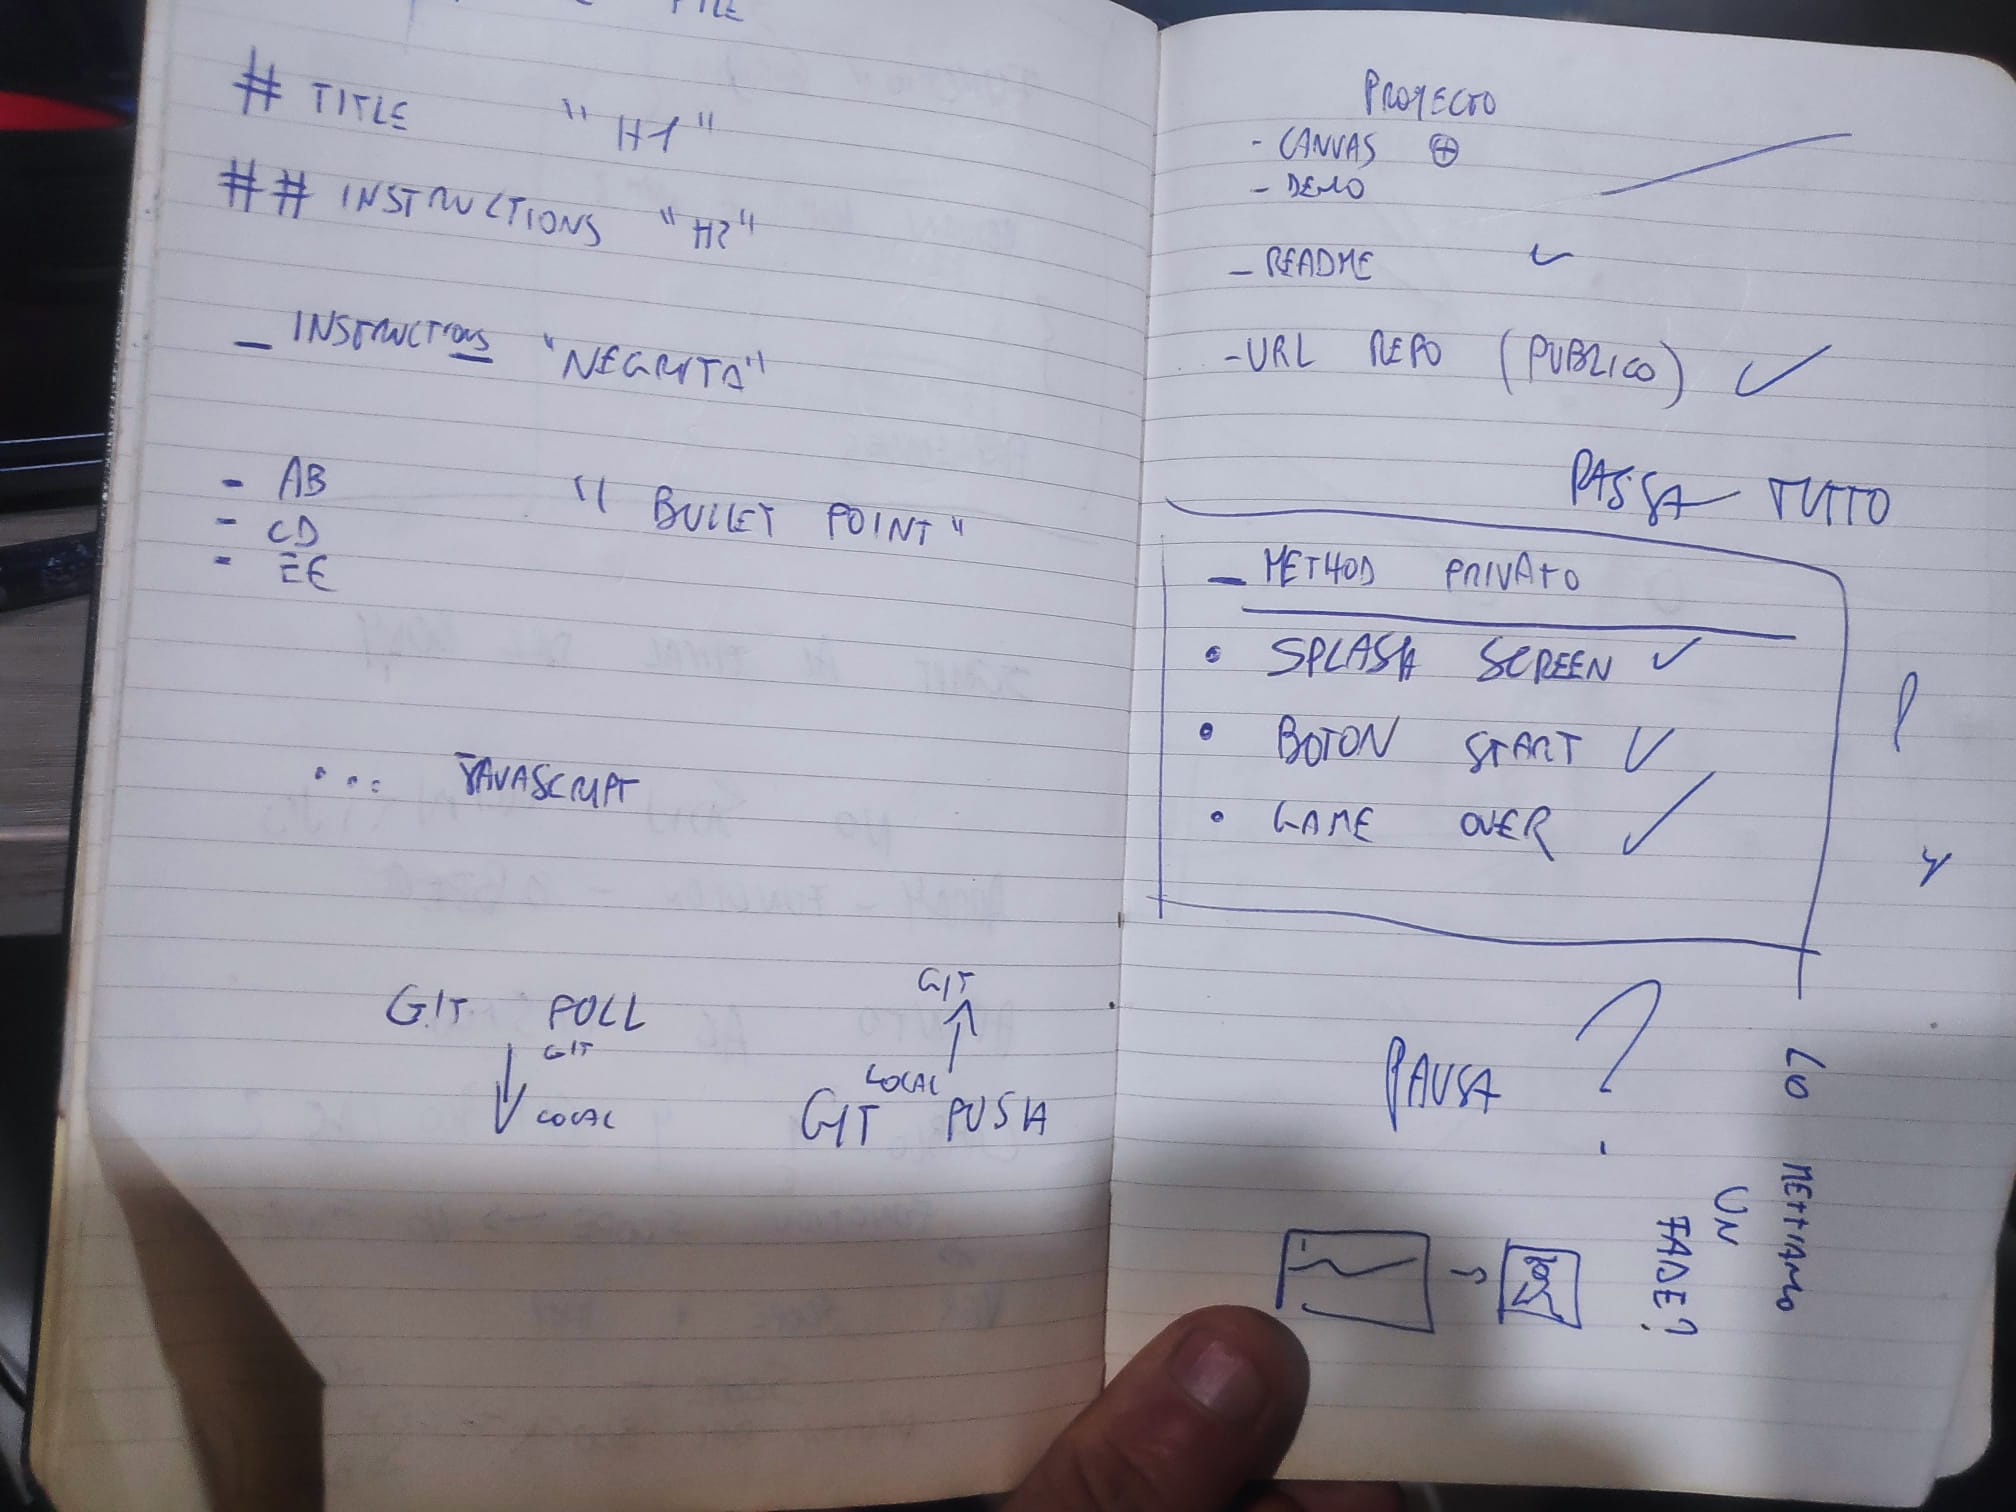 FILE
# TITLE "H1"
## INSTRUCTIONS "H2"
_ INSTRUCTIONS "NEGRITA"
- AB "BULLET POINT"
- CD
- EE
... JAVASCRIPT
GIT POLL
GIT
LOCAL
GIT
LOCAL
GIT PUSH
PROYECTO
- CANVAS ⊕
- DEMO
- README ✓
- URL REPO (PUBLICO) ✓
PASSA TUTTO
- METHOD PRIVATO
• SPLASH SCREEN ✓
• BOTON START ✓
• GAME OVER ✓
PAUSA ?
LO METTIAMO
UN
FADE?